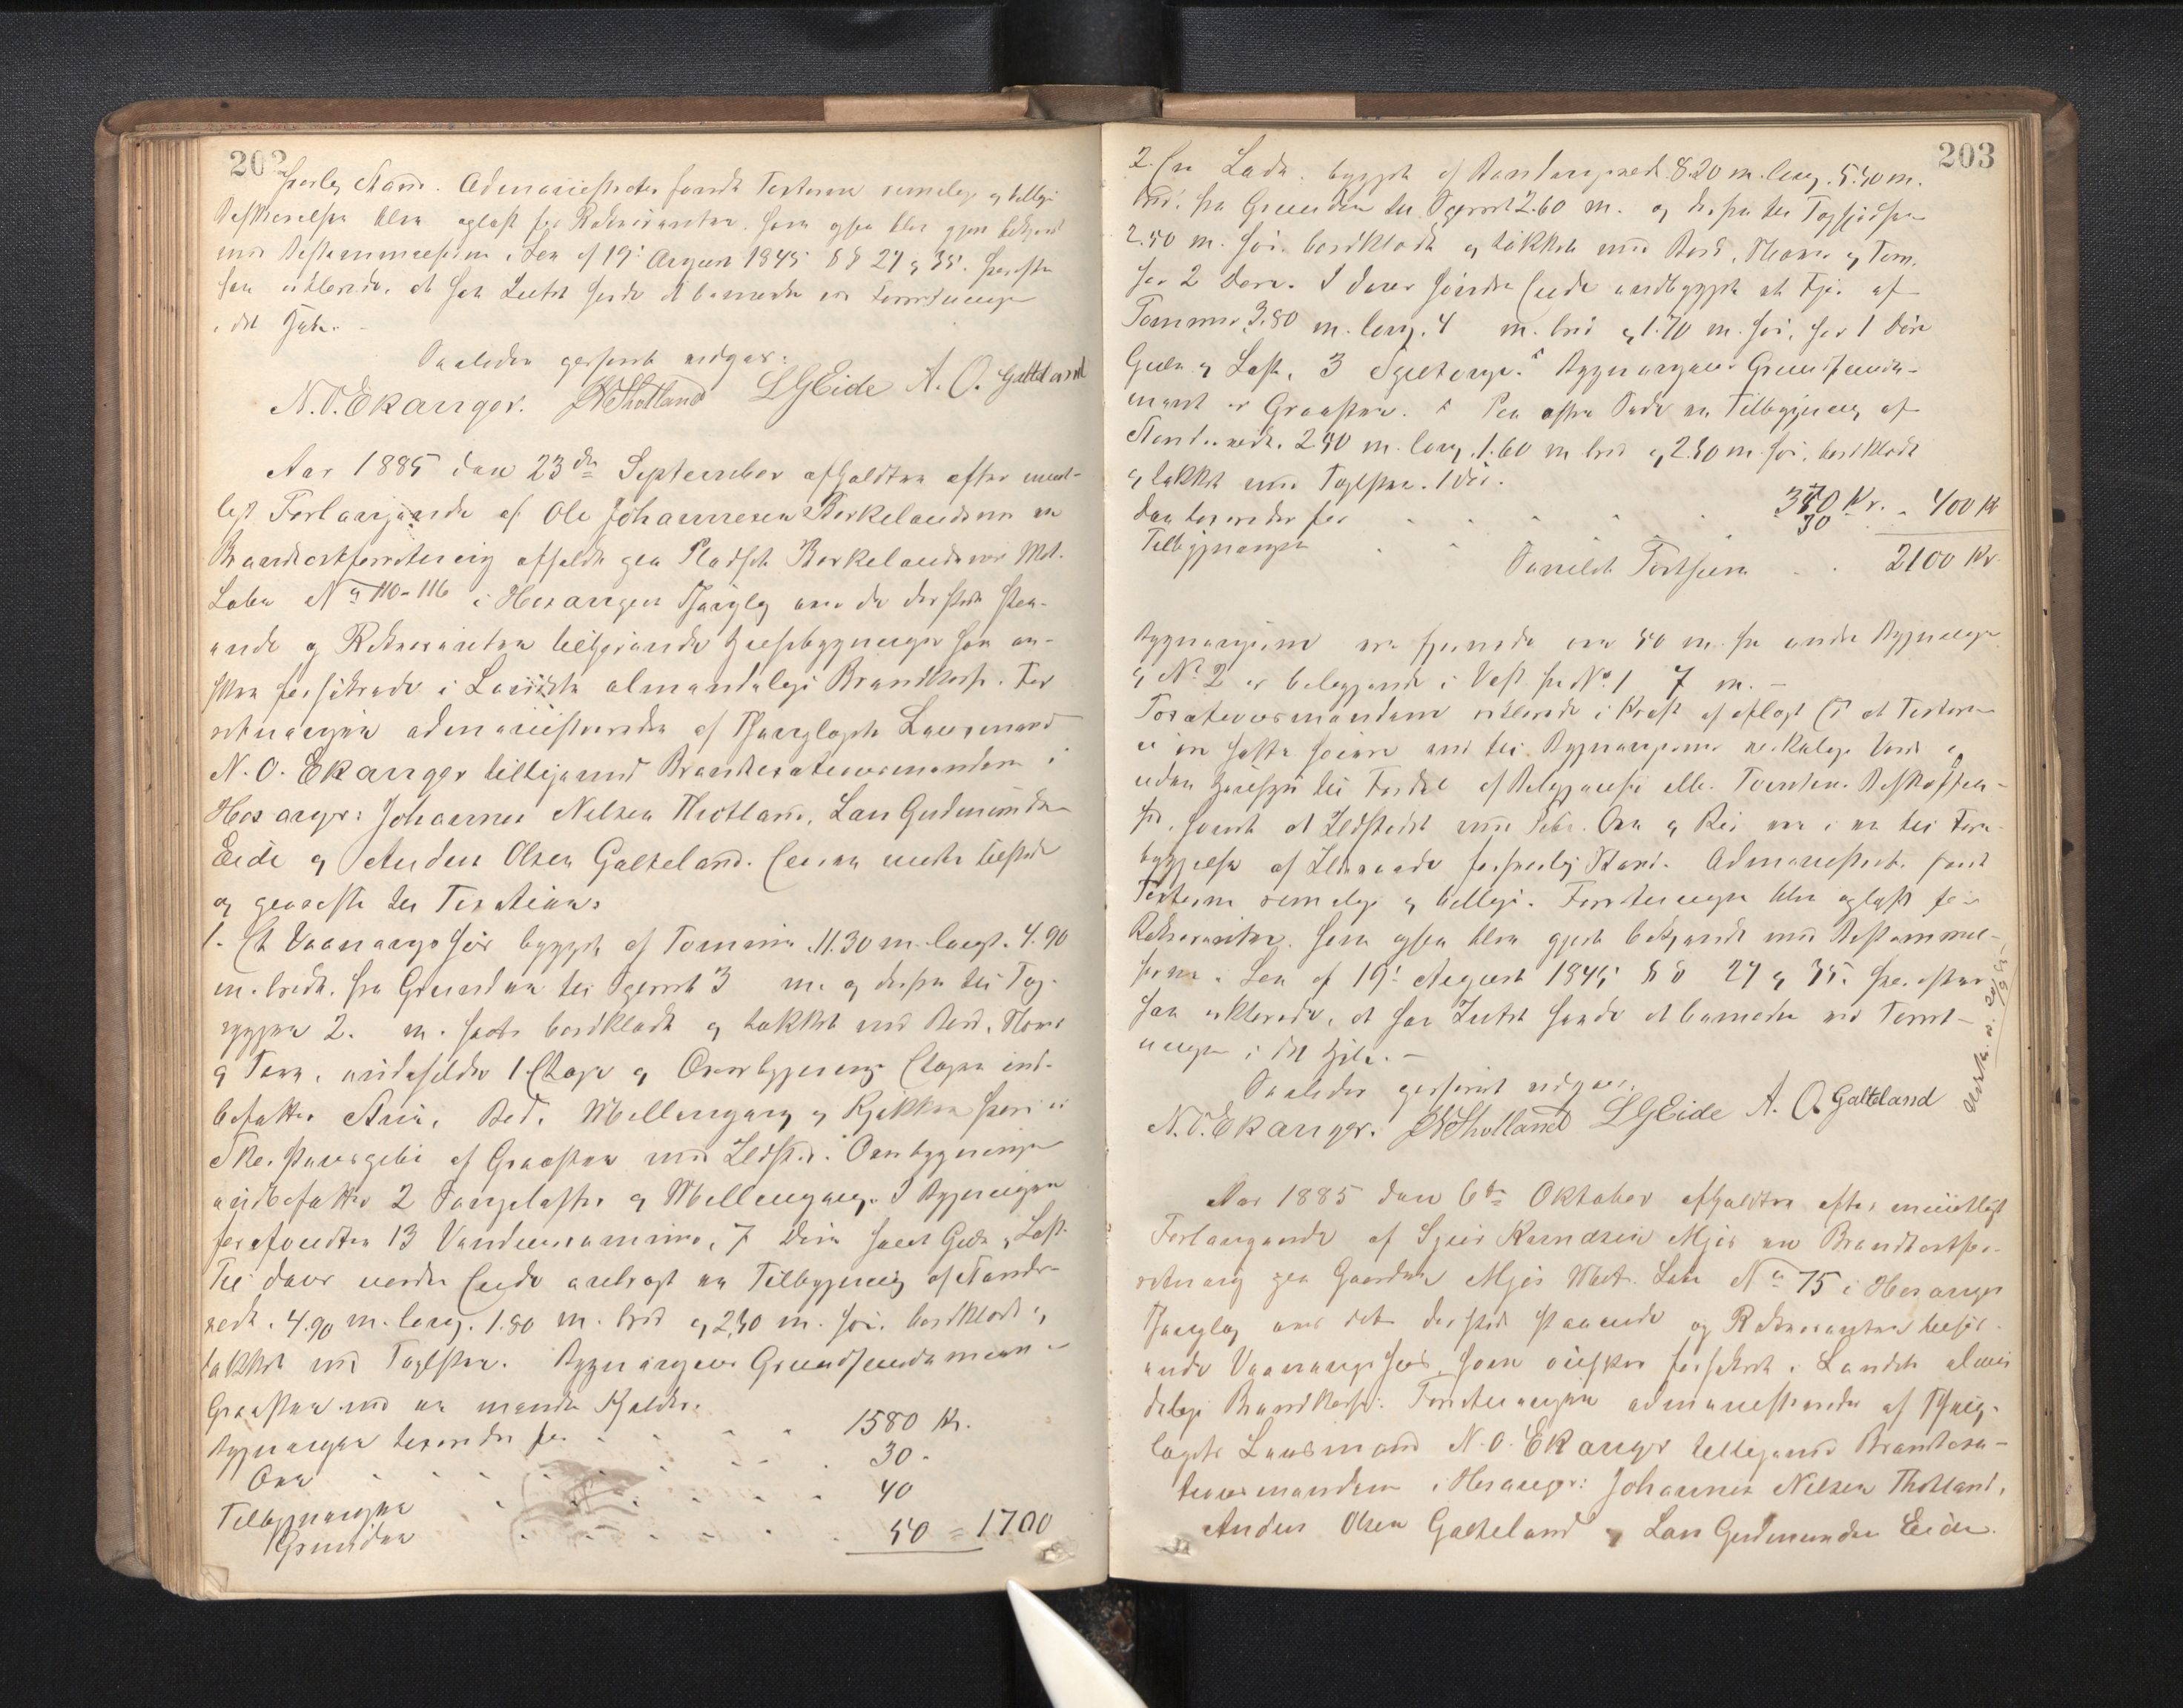 202
Stand. Administrator fandt Taxterne rimelige og billige
Beskrivelsen blev oplæst for Rekvirenten. Som ogsaa blev gjort bekjendt
med Bestemmelserne i Lov af 19. August 1845 §§ 27 og 35. hvorefter
han erklærede, at han Intet havde at bemærke ved Forretningen
i det Hele.
Saaledes passeret vidner:
N. O. Ekanger. JNTholland LGEide A. O. Galteland
Aar 1885 den 23de September afholdtes efter mundt-
ligt Forlangende af Ole Johannesen Berkelandsvn en
Brandtaxtforretning afholdt paa Pladsen Berkelandsvn Mat.
Løbe No 110-116 i Hosanger Thinglag over de dersteds staa-
ende og Rekvirenten tilhørende Huusbygninger som øn-
skes forsikrede i Landets almindelige Brandkasse. For
retningen administreredes af Thinglagets Lensmand
N. O. Ekanger tilligemed Brandtaxationsmændene i
Hosanger: Johannes Nilsen Tholland, Lars Gudmundsen
Eide og Anders Olsen Galteland. Eieren mødte tilstede
og passerte til Taxation:
1. Et Vaaningshus bygget af Tømmer 11.30 m. langt. 4.90
m. bredt. fra Grunden til Gesimset 3 m. og derfra til Tag-
ryggen 2. m. høit bordklædt og takket med Bord, Næver
og Torv, indeholder 1 Etage og Overbygning Etagen ind-
befatter Stue, Bod, Mellemgang og Kjøkken hvori er
Skorstenspibe af Graasten med Ildsted. Overbygningen
indbefatter 2 Sengelofter og Mellemgang. I Bygningen
forefindes 13 Vinduesrammer, 7 Døre samt Gulv og Loft.
Til dens nordre Ende anbragt en Tilbygning af Stænder-
værk. 4.90 m. lang. 1.80 m. bred og 2,40 m. høi. bordklædt og
takket med Taglsten. Bygningens Grundfundament er
Graasten med en murede Kjelder.
Bygningen taxeredes for 1580 Kr.
Ovn 30
Tilbygningen 40
Grunden 50 = 1700
203
2. En Lade. bygget af Bindingsværk 8.20 m. lang. 5.40 m.
bred. fra Grunden til Gesimset 2.60 m. og derfra til Taghøiden
2.40 m. høi. bordklædt og takket med Bord, Næver og Torv.
har 2 Døre. I dens søndre Ende indbygget et Fjøs af
Tømmer 3.80 m. lang. 4 m. bred og 1.70 m. høi, har 1 Dør
Gulv og Loft. 3 Bygningens Grundfunda-
ment er Graasten. Paa østre Side en Tilbygning af
Stænderværk. 2.40 m. lang. 1.60 m bred og 2.40 m. høi. bordklædt
og takket med Taglsten. 1 dør.
Den taxeredes for 370 Kr.
Tilbygningen 30 400 Kr
Samlede Taxtsum 2100 Kr.
Bygningerne ere fjernede over 50 m. fra andre Bygninger
og No 2 er beliggende i Vest fra No 1 7 m. -
Taxationsmændene erklærede i Kraft af aflagt Ed at Taxterne
er ansatte svarende til Bygningernes virkelige Værd og
uden Hensyn til Fordel af Beliggenhed eller Tomtens Beskaffen-
hed, samt at Ildstedet med Pibe. Ovn og Rør ere i en til Fore-
byggelse af Ildsvaade forsvarlig Stand. Administrator fandt
Taxterne rimelige og billige. Forretningen blev oplæst for
Rekvirenten. Som ogsaa blev gjort bekjendt med Bestemmel-
serne i Lov af 19. August 1845 §§ 27 og 35. hvorefter
han erklærede, at han Intet havde at bemærke ved Forret-
ningen i det Hele. -
Saaledes passeret vidner.
N. O. Ekanger. JNTholland LGEide A. O. Galteland
Aar 1885 den 6te Oktober afholdtes efter mundtligt
Forlangende af Sjur Mjøs en Brandtaxtfor-
retning paa Gaarden Mjøs Mat. Løbe No 75 i Hosanger
Thinglag over det dersteds staaende og Rekvirenten tilhør-
ende Vaaningshus, som ønskes forsikret i Landets almin
delige Brandkasse. Forretningen administreredes af Thing-
lagets Lensmand N. O. Ekanger tilligemed Brandtaxa-
tionsmændene i Hosanger: Johannes Nilsen Tholland,
Anders Olsen Galteland og Lars Gudmundsen Eide.